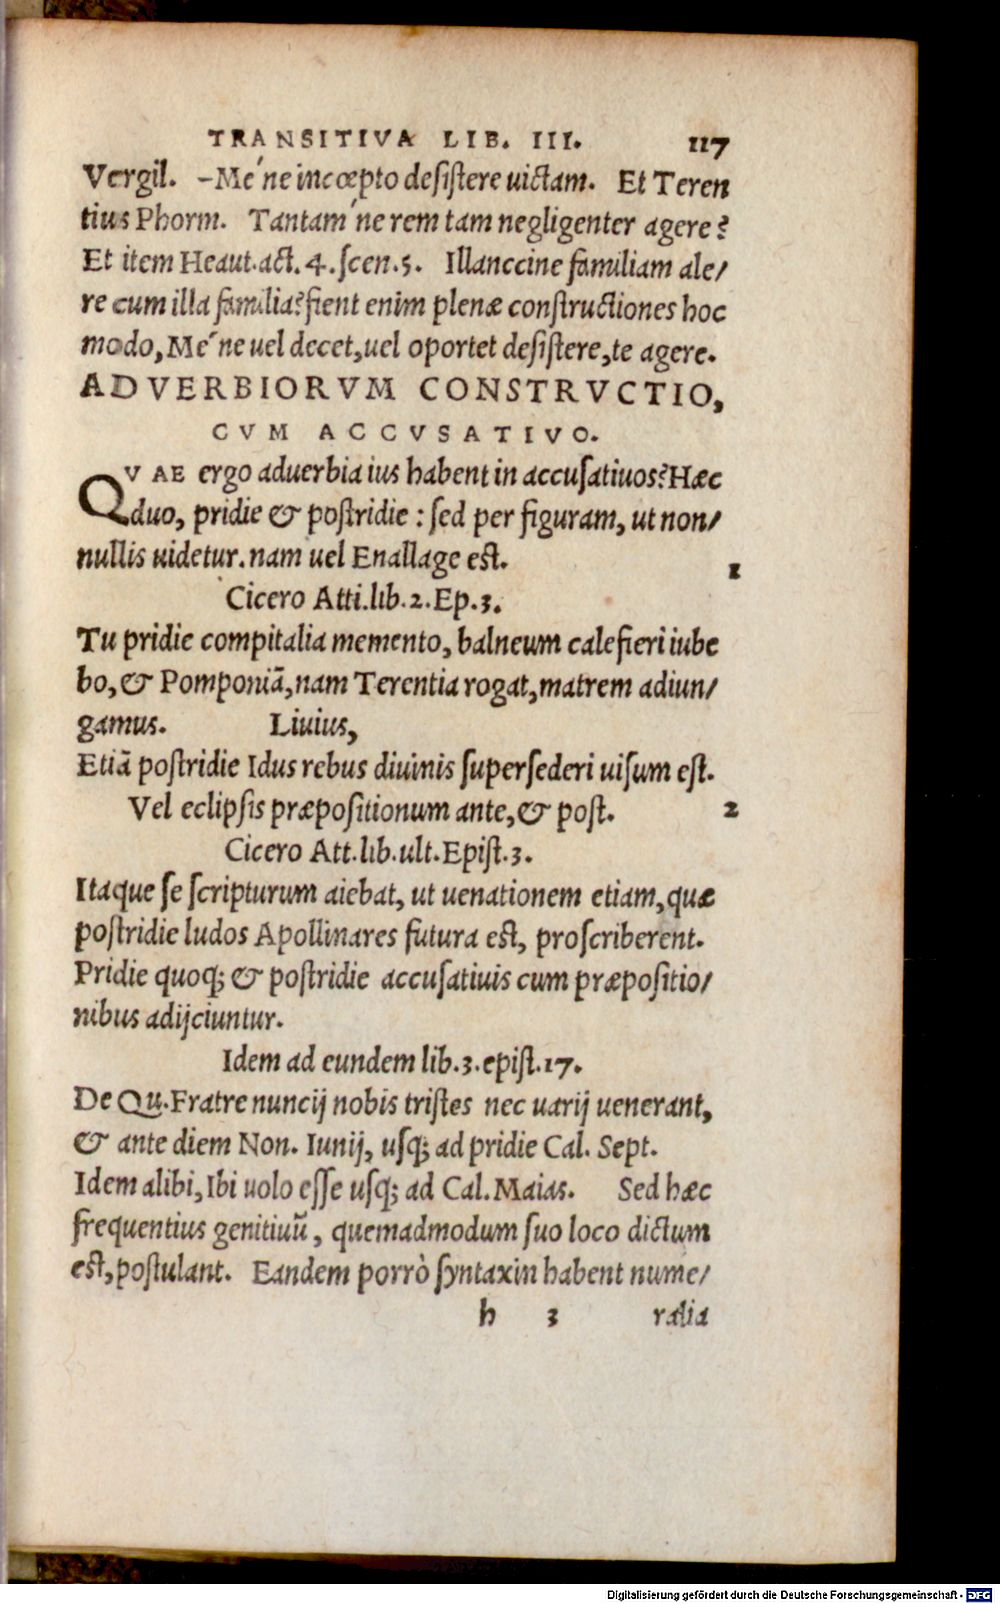 TRANSITIVA LIB. III. 117
Vergil. –Me´ne incœpto desistere uictam. Et Teren
tius Phorm. Tantam´ne rem tam negligenter agere?
Et item Heaut. act. 4. scen. 5. Illanccine familiam ale/
re cum illa familia? fient enim plenæ constructiones hoc
modo, Me´ne uel decet, uel oportet desistere, te agere.
ADVERBIORVM CONSTRVCTIO,
CVM ACCVSATIVO.
QVAE ergo aduerbia ius habent in accusatiuos? Hæc
duo, pridie & postridie : sed per figuram, ut non/
nullis uidetur. nam uel Enallage est. 1
Cicero Atti. lib. 2. Ep. 3.
Tu pridie compitalia memento, balneum calefieri iube
bo, & Pomponiā, nam Terentia rogat, matrem adiun/
gamus. Liuius,
Etiā postridie Idus rebus diuinis supersederi uisum est.
Vel eclipsis præpositionum ante, & post. 2
Cicero Att. lib. ult. Epist. 3.
Itaque se scripturum aiebat, ut uenationem etiam, quæ
postridie ludos Apollinares futura est, proscriberent.
Pridie quoq; & postridie accusatiuis cum præpositio/
nibus adijciuntur.
Idem ad eundem lib. 3. epist. 17.
De Qu. Fratre nuncij nobis tristes nec uarij uenerant,
& ante diem Non. Iunij, usq; ad pridie Cal. Sept.
Idem alibi, Ibi uolo esse usq; ad Cal. Maias. Sed hæc
frequentius genitiuū, quemadmodum suo loco dictum
est, postulant. Eandem porrò syntaxin habent nume/
h 3 ralia
Digitalisierung gefördert durch die Deutsche Forschungsgemeinschaft - DFG